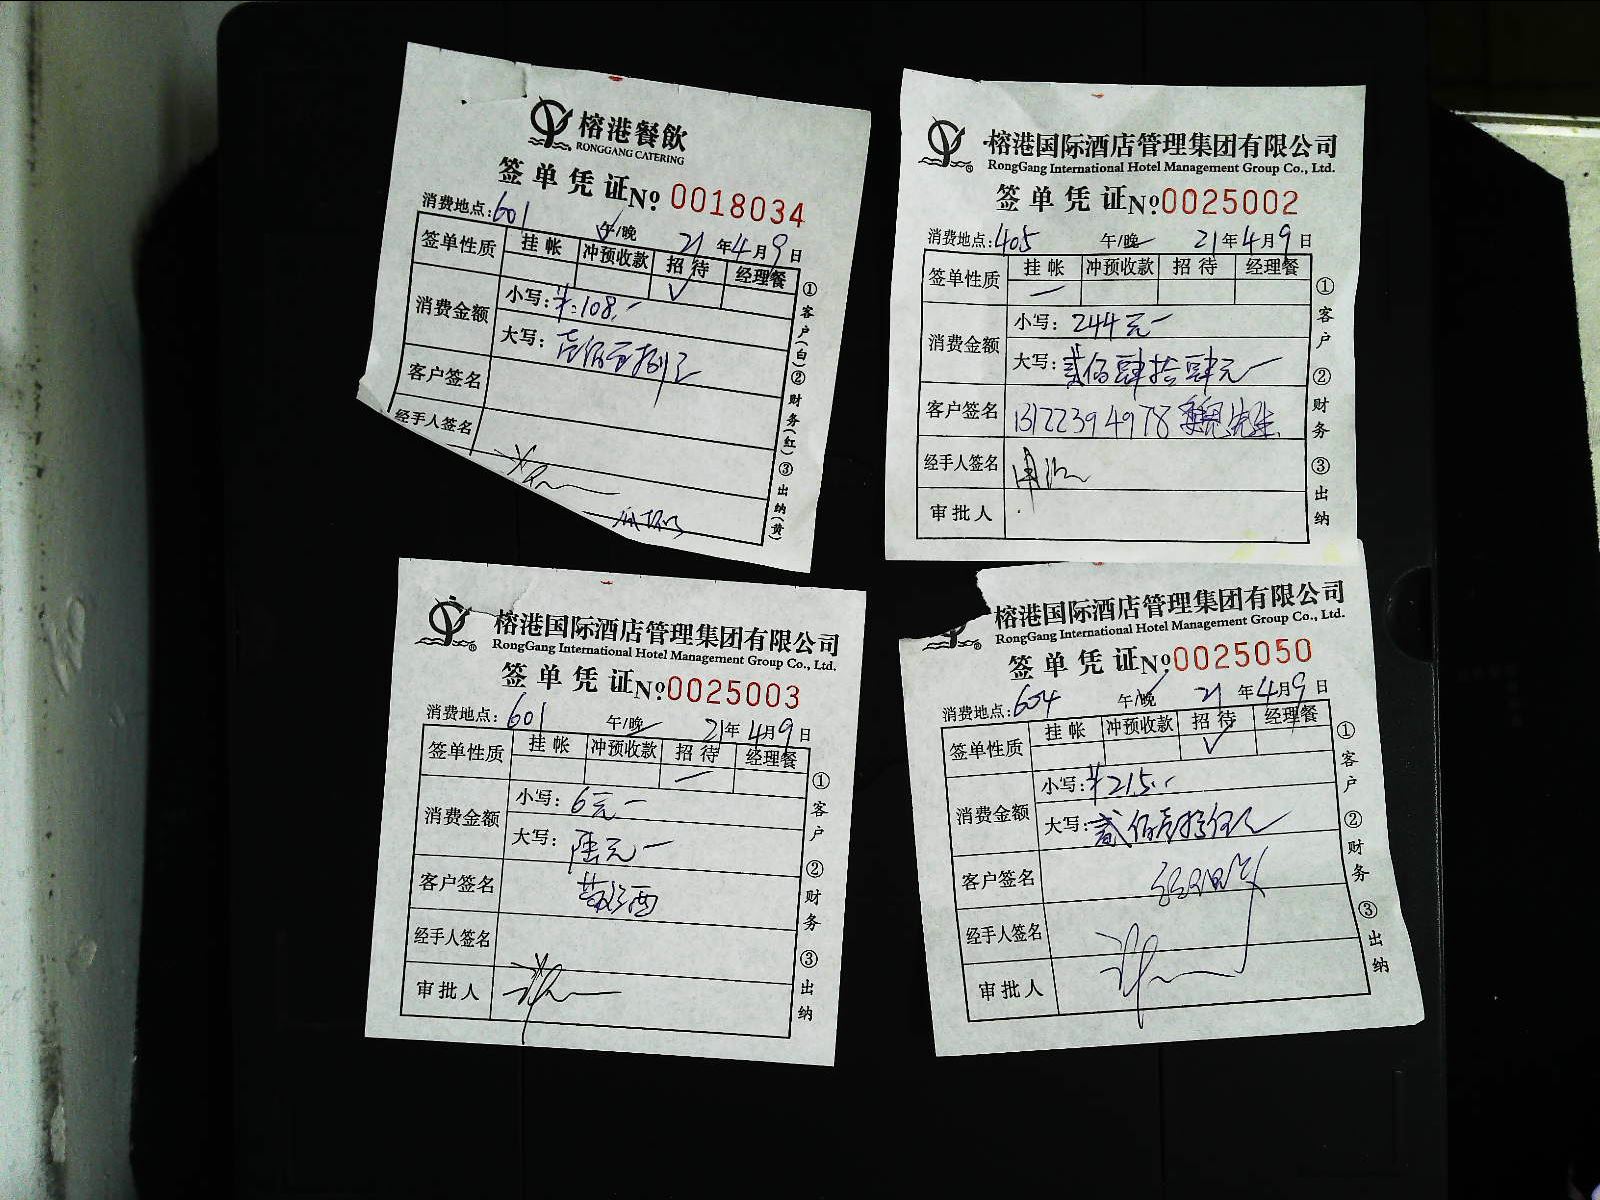 榕港餐飲
RONGGANG CATERING
签单凭证 No 0018034
消费地点:601 午/晚 21年4月9日
签单性质 挂帐 冲预收款 招待 经理餐
消费金额 小写:¥:108.-
大写:壹佰零捌元
客户签名
经手人签名
①客户(白)②财务(红)③出纳(黄)
榕港国际酒店管理集团有限公司
RongGang International Hotel Management Group Co., Ltd.
签单凭证 No 0025002
消费地点:405 午/晚 21年4月9日
签单性质 挂帐 冲预收款 招待 经理餐
消费金额 小写:244元-
大写:贰佰肆拾肆元-
客户签名 13122394978 魏先生
经手人签名
审批人
①客户 ②财务 ③出纳
榕港国际酒店管理集团有限公司
RongGang International Hotel Management Group Co., Ltd.
签单凭证 No 0025003
消费地点:601 午/晚 21年4月9日
签单性质 挂帐 冲预收款 招待 经理餐
消费金额 小写:6元-
大写:陆元-
客户签名
经手人签名
审批人
①客户 ②财务 ③出纳
榕港国际酒店管理集团有限公司
RongGang International Hotel Management Group Co., Ltd.
签单凭证 No 0025050
消费地点:604 午/晚 21年4月9日
签单性质 挂帐 冲预收款 招待 经理餐
消费金额 小写:¥215.-
大写:贰佰壹拾伍元
客户签名
经手人签名
审批人
①客户 ②财务 ③出纳